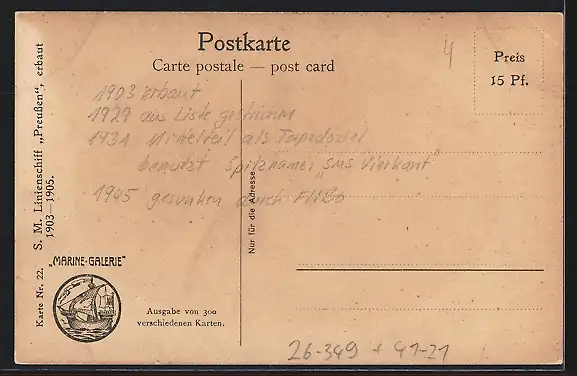 Postkarte
Carte postale — post card
4
Preis
15 Pf.
1903 erbaut
1929 aus Liste gestrichen
1931 Mittelteil als Torpedoziel
benutzt Spitzname: "SMS Vierkant"
1945 gesunken durch FliBo
S. M. Linienschiff „Preußen", erbaut
1903—1905.
Karte Nr. 22.
Nur für die Adresse
„MARINE-GALERIE"
Ausgabe von 300
verschiedenen Karten.
26-349 + 41-21